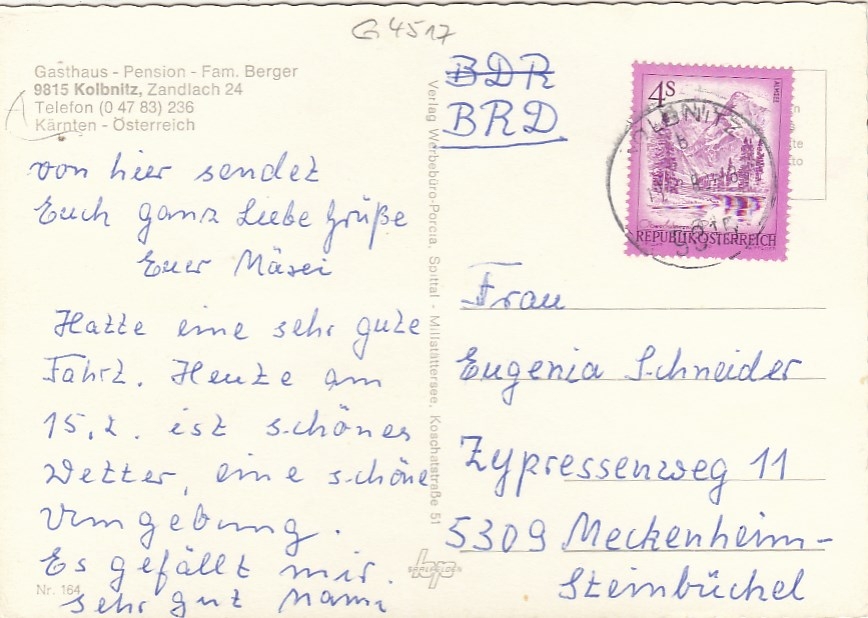 G 4517
Gasthaus - Pension - Fam. Berger
9815 Kolbnitz, Zandlach 24
Telefon (0 47 83) 236
Kärnten - Österreich
von hier sendet
Euch ganz Liebe Grüße
Euer
Hatte eine sehr gute
Fahrt. Heute am
15.2. ist schönes
Wetter, eine schöne
Umgebung.
Es gefällt mir.
sehr gut Mami
Nr. 164
Verlag Werbebüro-Porcia, Spittal - Millstättersee, Koschatstraße 51
BDR
BRD
4s
ALMSEE
REPUBLIK ÖSTERREICH
KOLBNITZ
9815
Frau
Eugenia Schneider
Zypressenweg 11
5309 Meckenheim-
Steinbüchel